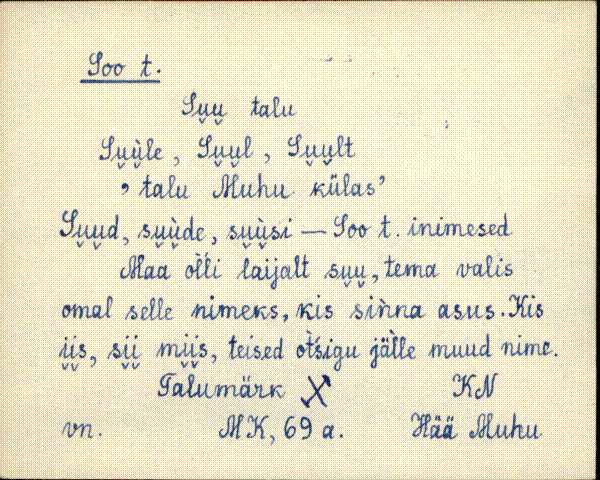 Soo t.
Su̯u̯ talu
Su̯ù̯le, Su̯u̯l, Su̯u̯lt
’talu Muhu külas’
Su̯u̯d, su̯ù̯de, su̯ù̯si — Soo t. inimesed
Maa ol̀li laijalt su̯u̯, tema valis
omal selle nimeks, kis siǹna asus. Kis
i̯i̯s, si̯i̯ mi̯i̯s, teised ot̀sigu jäl̀le muud nime.
Talumärk KN
vn. MK, 69 a. Hää Muhu